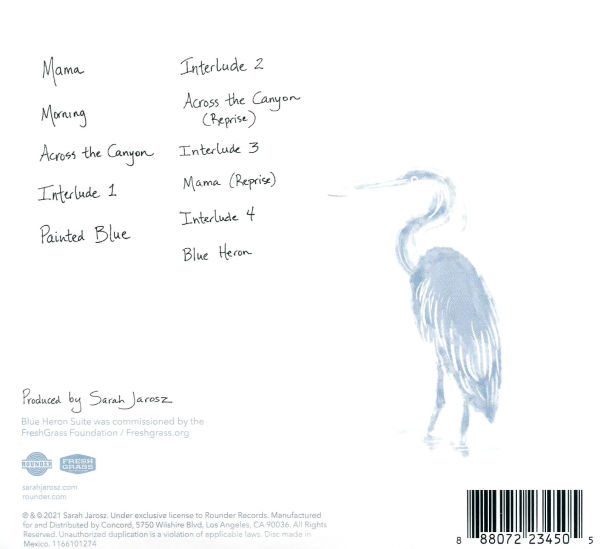 Mama
Morning
Across the Canyon
Interlude 1
Painted Blue
Interlude 2
Across the Canyon
(Reprise)
Interlude 3
Mama (Reprise)
Interlude 4
Blue Heron
Produced by Sarah Jarosz
Blue Heron Suite was commissioned by the
FreshGrass Foundation / Freshgrass.org
ROUNDER
FRESH
GRASS
sarahjarosz.com
rounder.com
℗ & © 2021 Sarah Jarosz. Under exclusive license to Rounder Records. Manufactured
for and Distributed by Concord, 5750 Wilshire Blvd, Los Angeles, CA 90036. All Rights
Reserved. Unauthorized duplication is a violation of applicable laws. Disc made in
Mexico. 1166101274
8 88072 23450 5